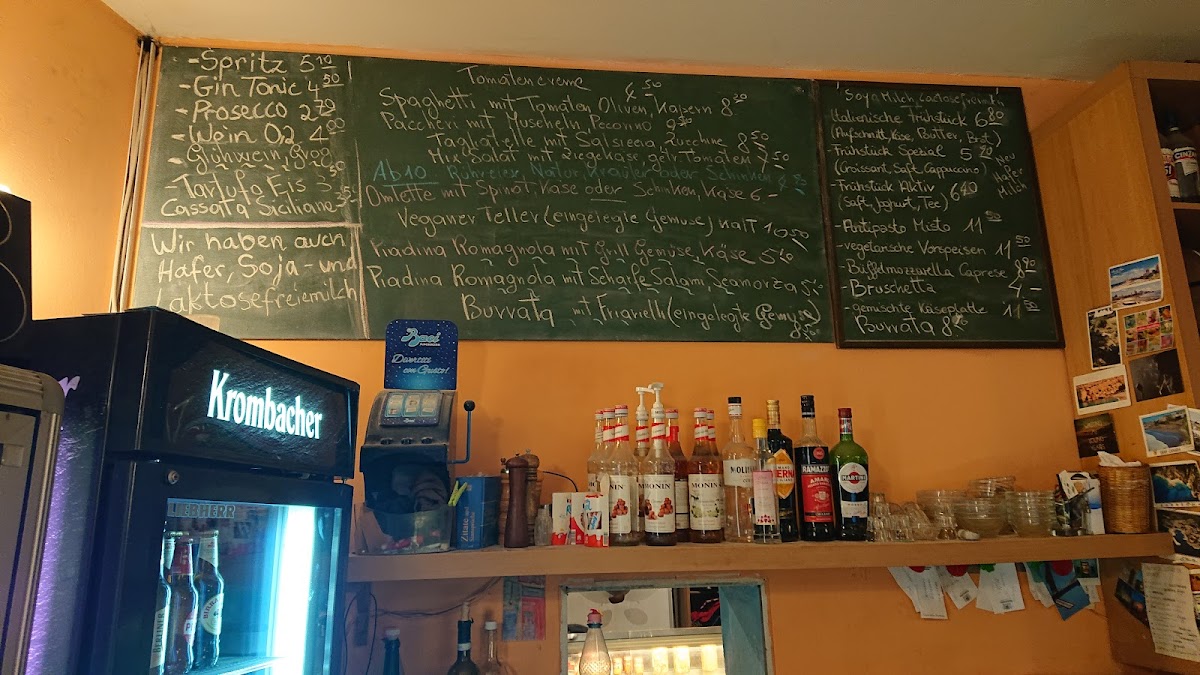 -Spritz 5 10
-Gin Tonic 4 50
-Prosecco 2 70
-Wein 0,2 4 00
Glühwein, Grog
-Tartufo Eis 3 50
Cassata Siciliana 3
Wir haben auch
Hafer, Soja- und
Laktosefreiemilch
Tomatencreme 4 50
Spaghetti mit Tomaten Oliven, Kapern 8 20
Paccheri mit Muscheln, Pecorino 9 50
Tagliatelle mit Salsiccia, Zucchine 8 50
Mix Salat mit Ziegekäse, getr Tomaten 7 50
Ab 10 Rühreier, Natur, Kräuter oder Schinken
Omlette mit Spinat, Käse oder Schinken, Käse 6 -
Veganer Teller (eingelegte Gemüse) kalt 10 50
Piadina Romagnola mit Grill Gemüse, Käse 5 10
Piadina Romagnola mit Scharfe Salami, Scamorza 5 10
Burrata mit Friarielli (eingelegte Gemüse)
8 50
Soya Milch, Lactosefreimi
Italienische Frühstück 6 80
(Aufschnitt, Käse, Butter, Brot)
-Frühstück Spezial 5 20
(Croissant, Saft, Cappuccino)
-Frühstück Aktiv 6 40
(Saft, Joghurt, Tee)
Neu
Hafer
Milch
-Antipasto Misto 11 50
-vegetarische Vorspeisen 11 50
-Büffelmozzarella Caprese 8 90
-Bruschetta 4 -
-gemischte Käseplatte 11 50
Burrata 8 20
Baci
Diversità
con Gusto!
Krombacher
LIEBHERR
BERLINER
MONIN
MONIN
MONIN
MOLINARI
RAMAZZOTTI
AMARO
MARTINI
CINZANO